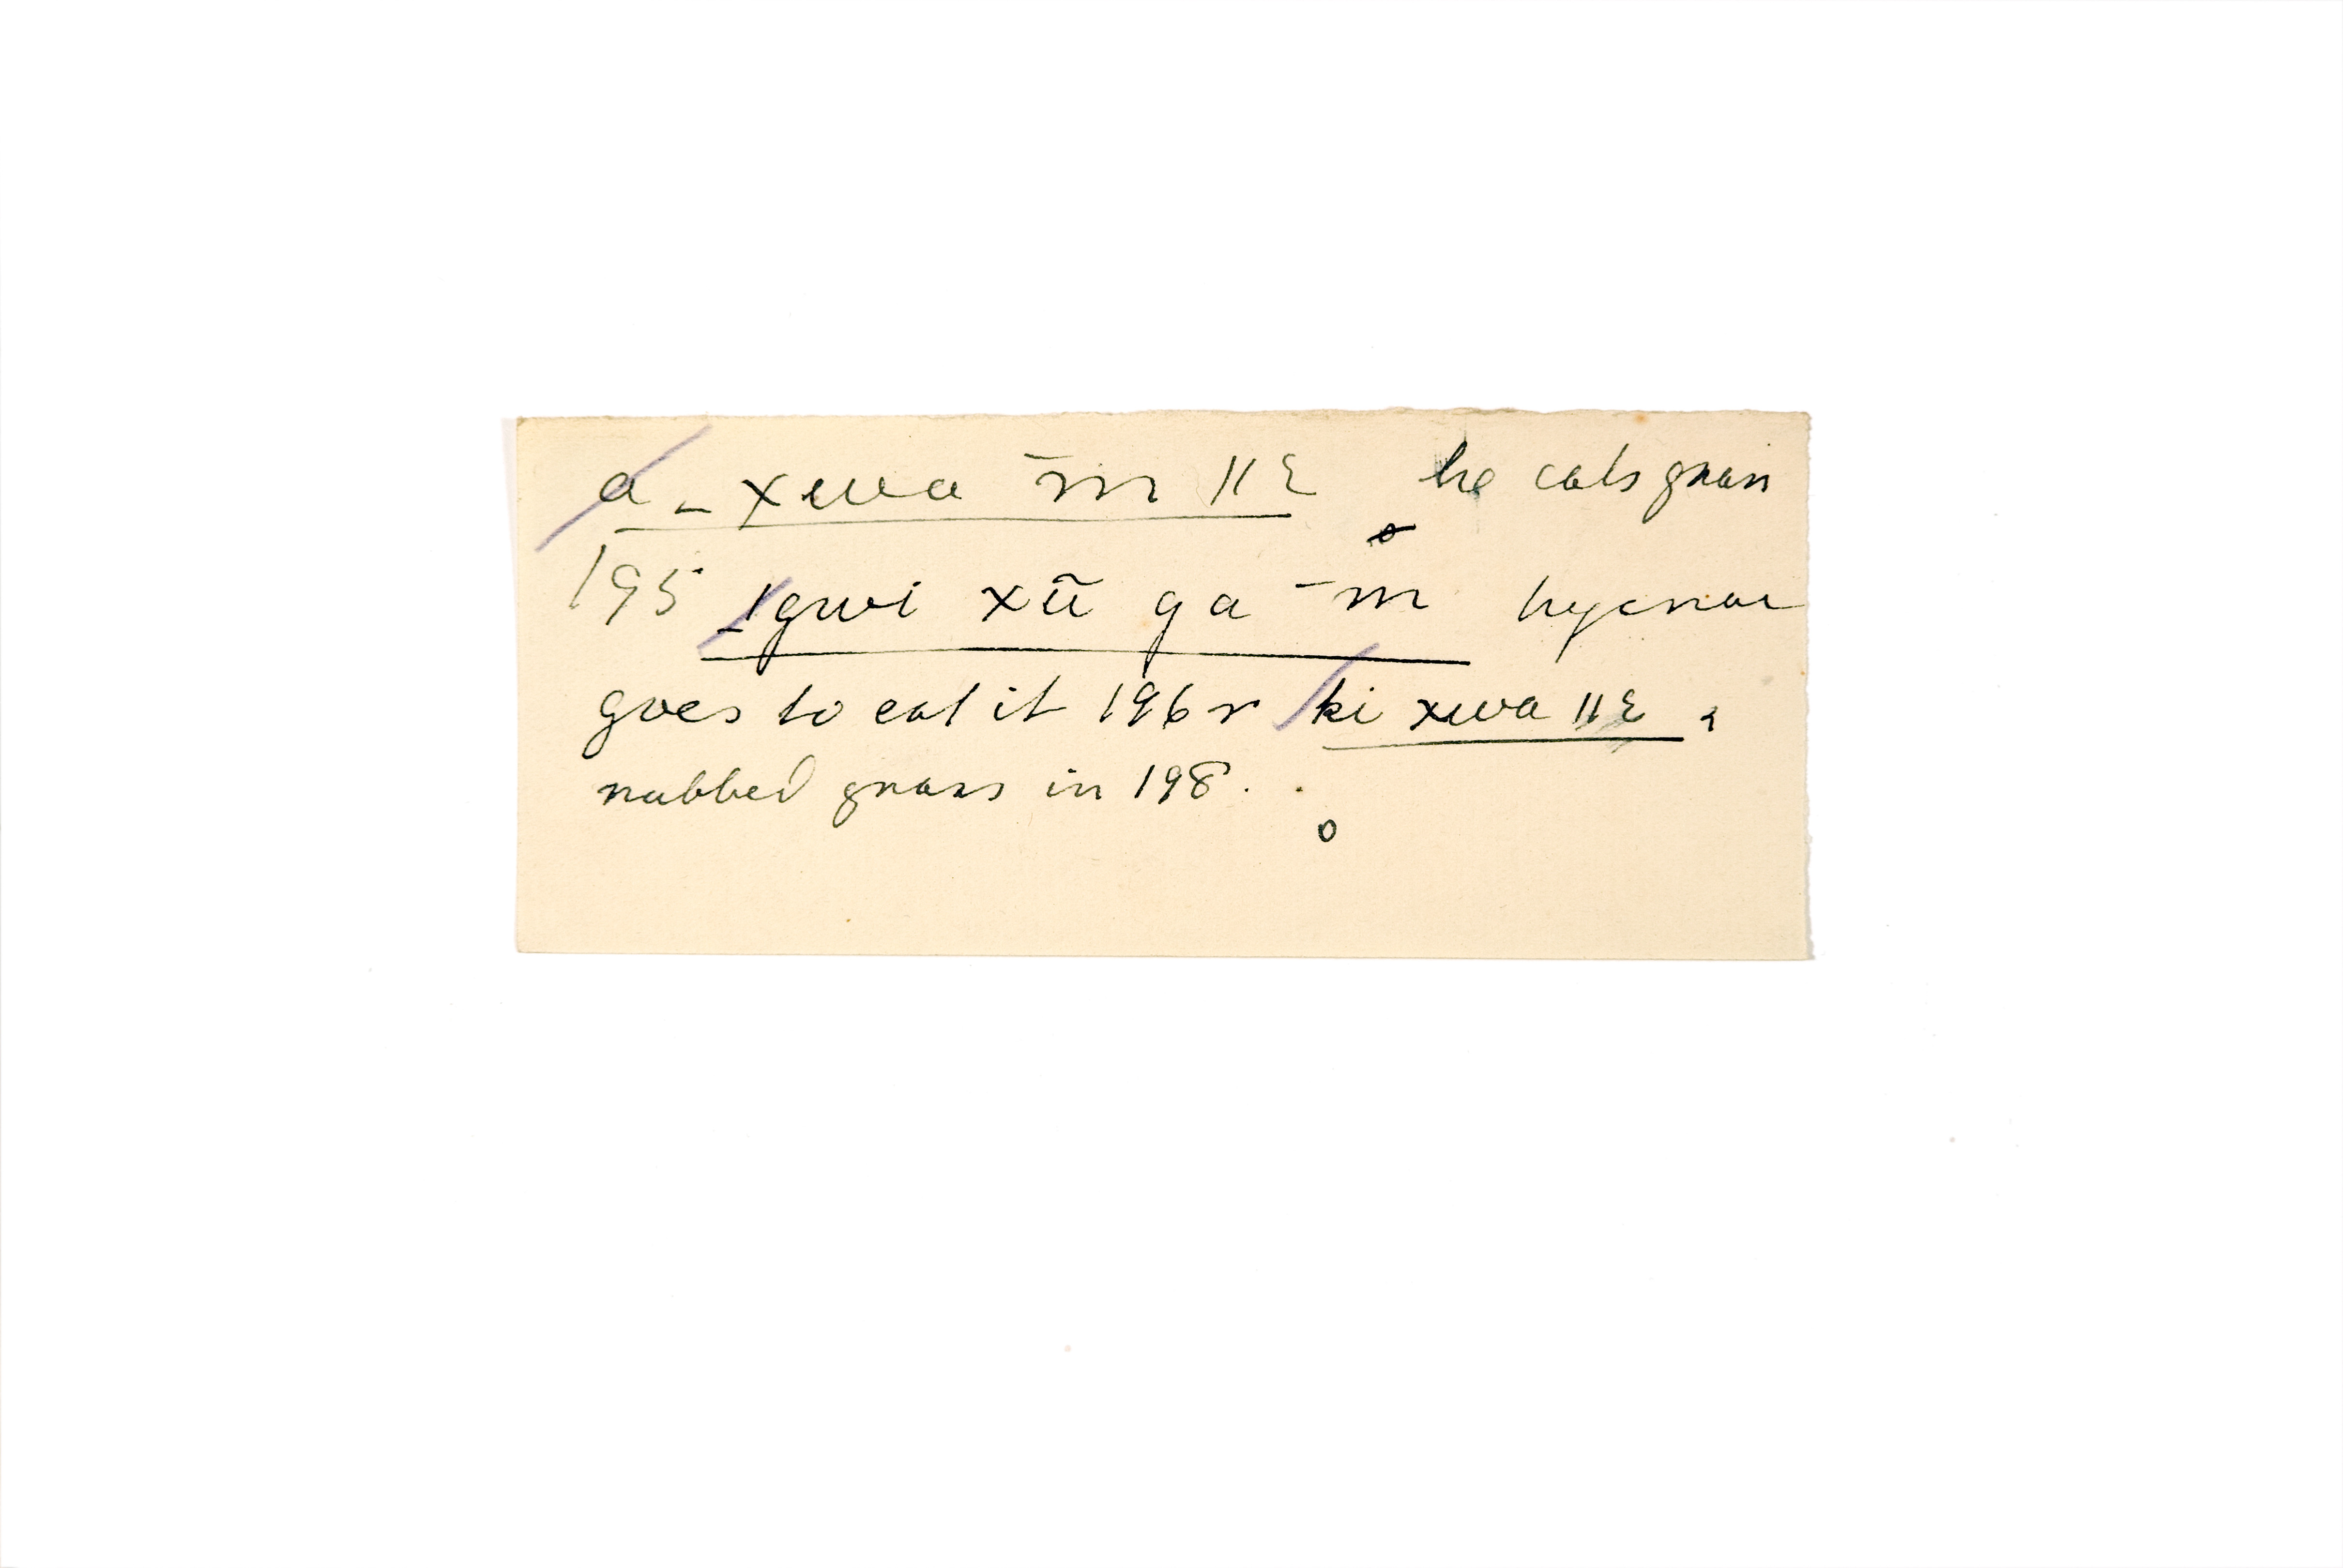 a _ xwa ‾m ǁɛ he eats grass
195 ǀgwi xū ga ‾m hyenae
goes to eat it 196 r ki xwa ǁɛ
rubbed grass in 198.